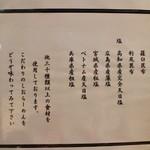 羅臼昆布
利尻昆布
塩
高知県産完全天日塩
広島県産藻塩
宮城県産粗塩
ベトナム産天日塩
兵庫県産粗塩
他三十種類以上の食材を
使用しております。
こだわりのしおらーめんを
どうぞ味わってみて下さい